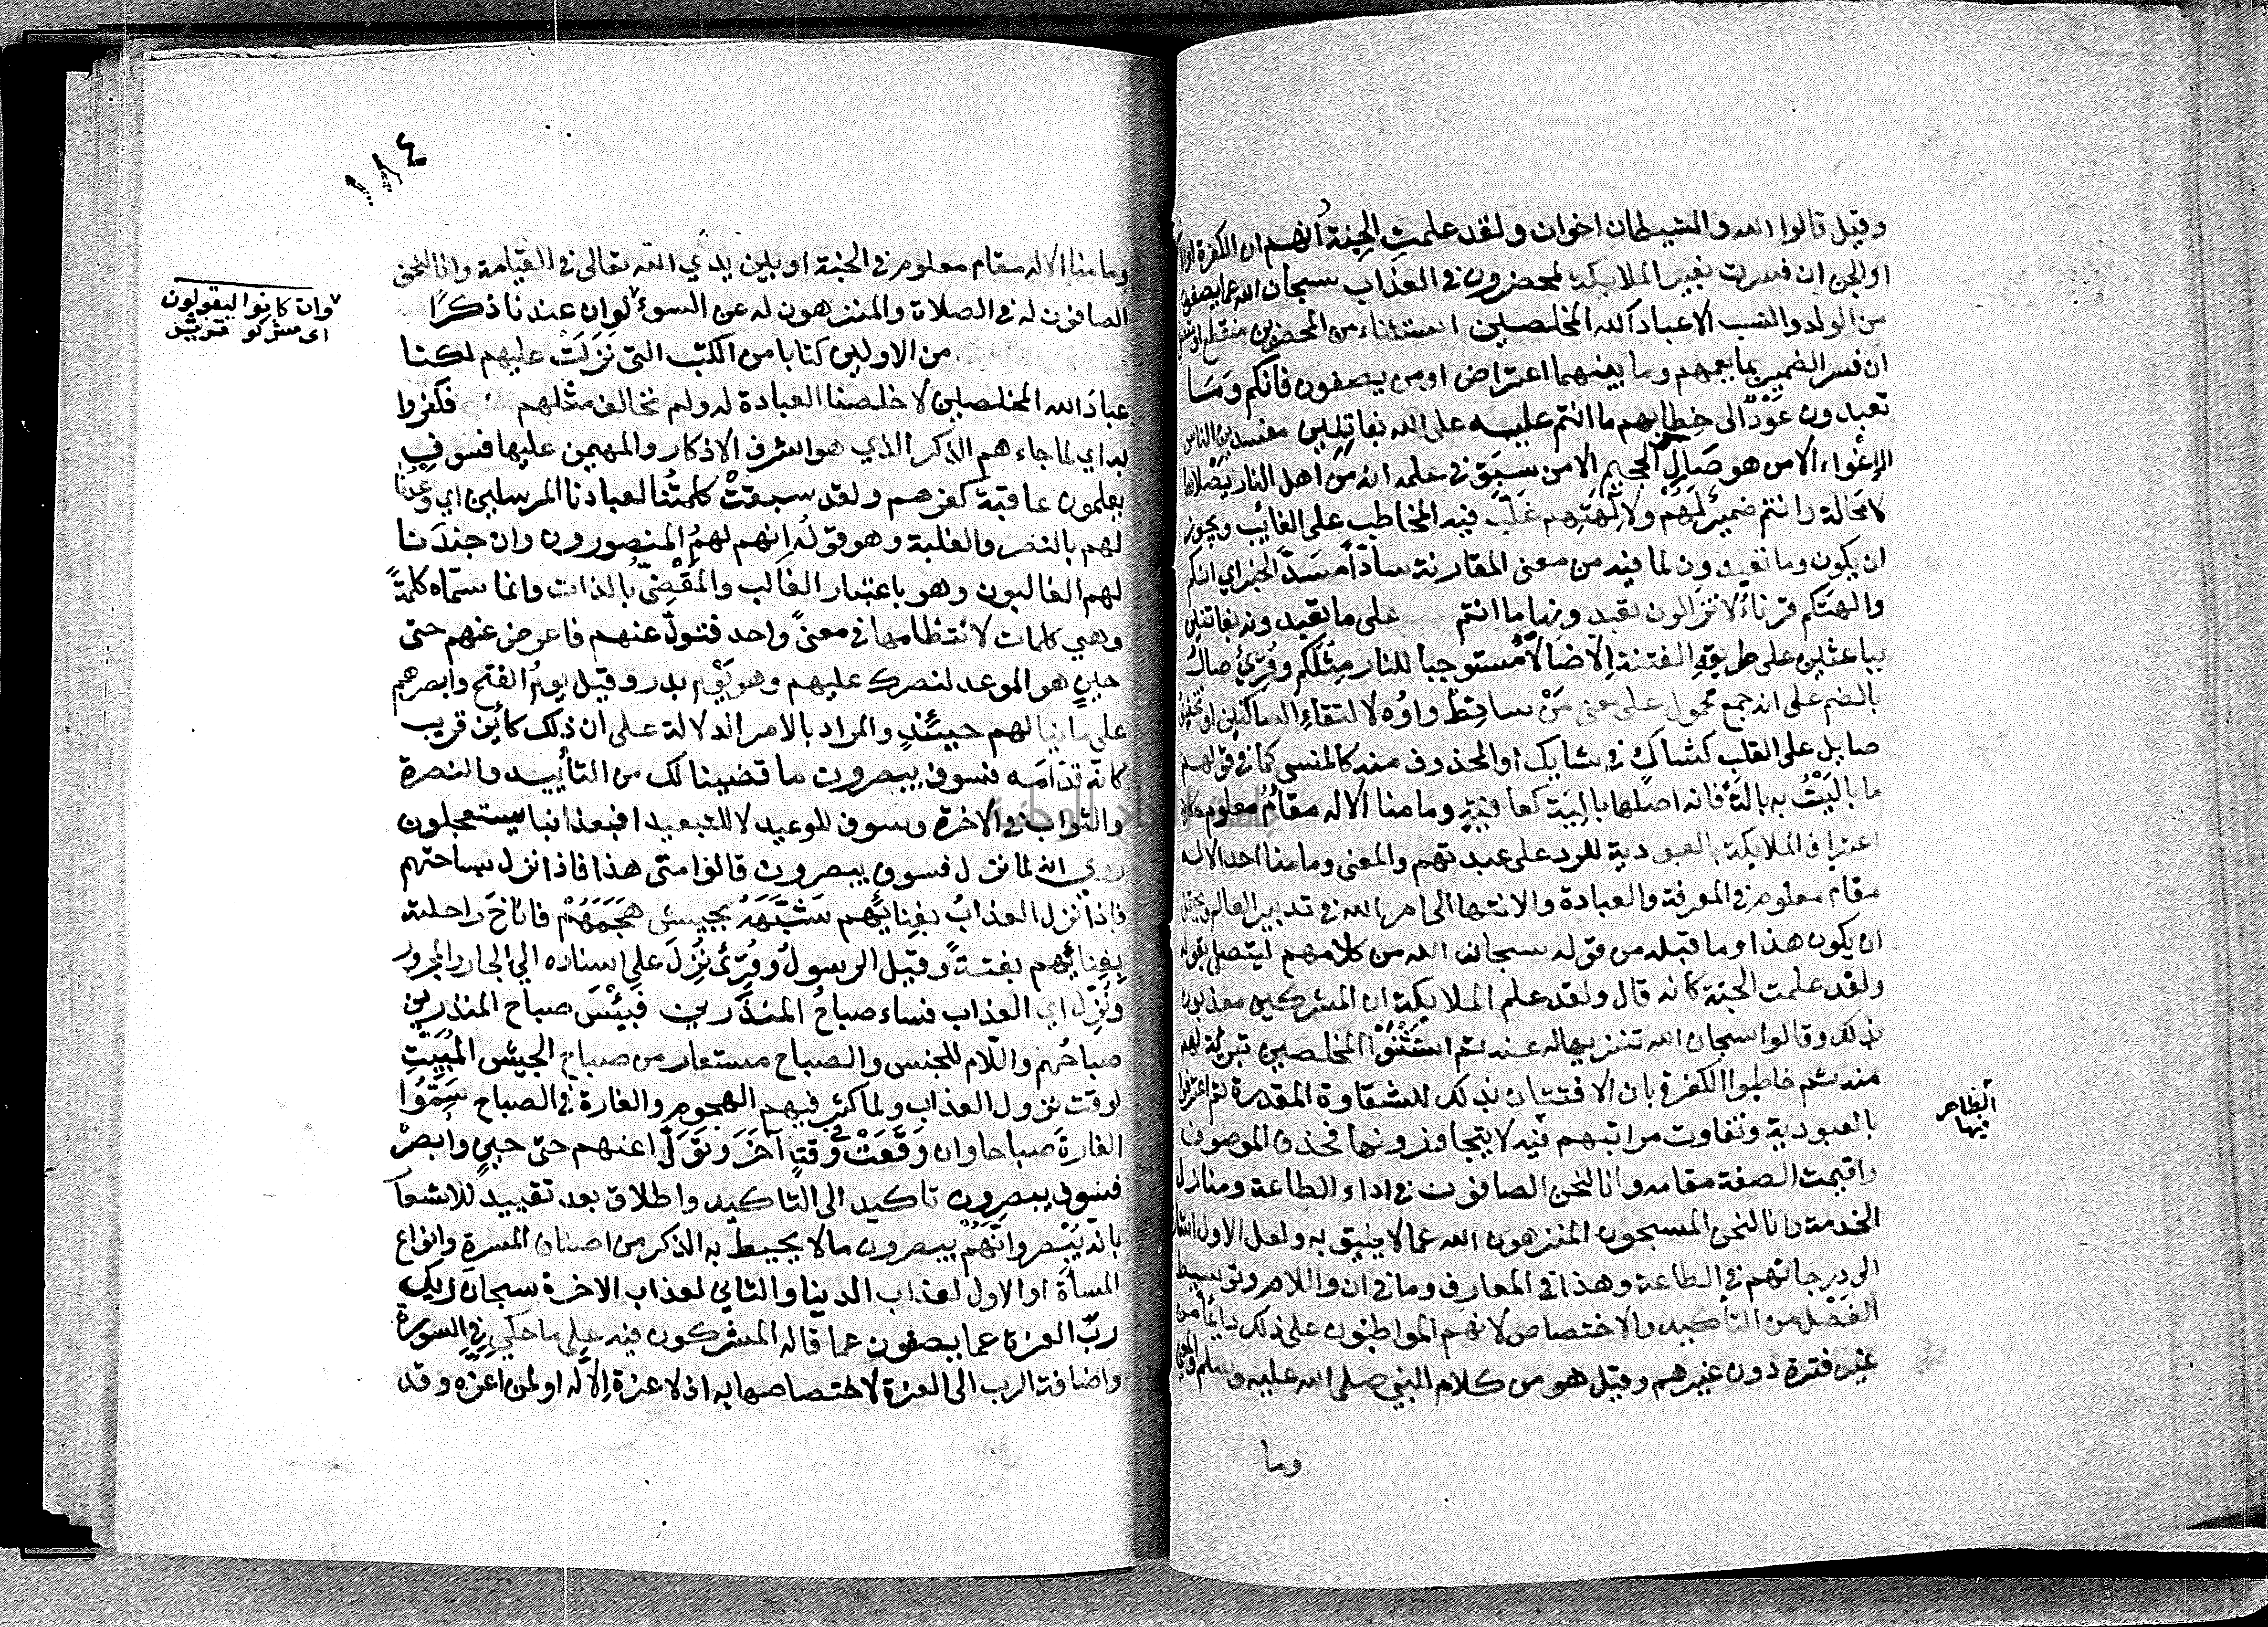 وقيل قالوا الله والشيطان اخوان ولقد علمت الجِنة انهم ان الكفرة او
او الجن ان فسرت بغير الملايكة لمحضرون في العذاب سبحان الله عما يصفون
من الولد والنسب الا عباد الله المخلصين استثناء من المحضرين منقطع او متصل
ان فسر الضمير بما يعمهم وما بينهما اعتراض او من يصفون فانكم وَمَا
تعبدون عَوْدٌ الى خِطابهم ما انتم عليه على الله بفاتِنين مفسدين الناس
الاغواء الا من هو صَالِ الجحيم الا من سبَق في علمه انه من اهل النار يَصْلاها
لا محالة وانتم ضميرٌ لَهُمْ ولآلِهَتِهم غَلَّبَ فيه المخاطب على الغائب ويجوز
ان يكون وما تعبدون لما فيه من معنى المقارنة سادّاً مَسَدَّ الخبر اي انكم
والهتَكم قرناءُ لا تزالون تعبدونها ما انتم على ما تعبدونه بفاتنين
بباعثين على طريقةِ الفتنة الا ضالًّا مستوجبا للنار مِثلَكم وقُرئ صالُ
بالضم على انه جمع محمول على معنى مَنْ ساقِطٌ واوُه لالتقاءِ الساكنين او تخفيف
صايل على القلب كشاكٍ في شايك او المحذوف منه كالمنسي كما في قولهم
ما بالَيْتُ به بالَةً فانه اصلها بالِيَة كعافيةٍ وما منا الا له مقامٌ معلوم
اعتراف الملايكة بالعبودية للرد على عبدتهم والمعنى وما منا احد الا له
مقام معلوم في المعرفة والعبادة والانتها الى امر الله في تدبير العالم ويحتمل
ان يكون هذا وما قبله من قوله سبحان الله من كلامهم ليتصل بقوله
ولقد علمت الجنة كانه قال ولقد علم الملايكة ان المشركين معذبون
بذلك وقالوا سبحان الله تنزيها له عنه ثم استَثْنَوُا المخلصين تبرئة لهم
منه ثم خاطبوا الكفرة بان الافتتان بذلك للشقاوة المقدرة ثم اعترفوا
بالعبودية وتفاوت مراتبهم فيه لا يتجاوزونها فحذف الموصوف
واقيمت الصفة مقامه وانا لنحن الصافون في اداء الطاعة ومنازل
الخدمة وانا لنحن المسبحون المنزهون الله عما لا يليق به ولعل الاول اشارة
الى درجاتهم في الطاعة وهذا في المعارف وما في ان واللام وتوسيط
الفَصْل من التأكيد والاختصاص لانهم المواظبون على ذلك دايمًا من
غير فترة دون غيرهم وقيل هو من كلام النبي صلى الله عليه وسلم والمعنى
وما
الظاهر
فيها
١٨٤
وما منا الا له مقام معلوم في الجنة او بين يدي الله تعالى في القيامة وانا لنحن
الصافون له في الصلاة والمنزهون له عن السوء لو ان عندنا ذكرًا
من الاولين كتابا من الكتب التي نَزَلَتْ عليهم لكنا
عبادَ الله المخلصين لاخلصنا العبادة له ولم نخالف مثلهم فكفروا
به اي لما جاءهم الذكر الذي هو اشرف الاذكار والمهيمن عليها فسوف
يعلمون عاقبة كفرهم ولقد سبقتْ كلمتُنا لعبادنا المرسلين اي وعدنا
لهم بالنصر والغلبة وهو قولُه إنهم لهمُ المنصورون وان جندَنا
لهم الغالبون وهو باعتبار الغالب والمَقْضِيِّ بالذات وانما سمّاه كلمةً
وهي كلمات لانتظامها في معنىً واحد فتولَّ عنهم فاعرض عنهم حتى
حينٍ هو الموعد لنصرك عليهم وهو يَوْم بدر وقيل يومُ الفتح وابصرهم
على ما ينالهم حينئذٍ والمراد بالامر الدلالة على ان ذلك كائن قريب
كانّه قدّامَه فسوف يبصرون ما قضينا لك من التأييد والنصرة
والثواب في الاخرة وسوف للوعيد لا للتبعيد افبعذابنا يستعجلون
روي انه لما نزل فسوف يبصرون قالوا متى هذا فاذا نزل بساحتهم
فاذا نزل العذابُ بفِنايِهم شَبَّهَهُ بجيشٍ هَجَمَهُمْ فاناخَ راحلته
بِفِنائِهم بغتةً وقيل الرسولُ وقُرِئ نُزِلَ على اسناده الي الجار والمجرور
ونُزِّل اي العذاب فساء صباحُ المنذَرين فَبِئْسَ صباح المنذرين
صباحُهم واللّام للجنس والصباح مستعار من صباح الجيش المُبَيِّتِ
لوقت نزول العذاب ولما كثر فيهم الهجوم والغارة في الصباح سَمَّوُا
الغارةَ صباحا وان وقعَتْ في وقتٍ آخَرَ وتَوَلَّ عنهم حتى حينٍ وابصرْ
فسوف يبصرون تاكيد الى التاكيد واطلاق بعد تقييد للاشعار
بانه يُبْصر وانَّهُمْ يبصرون ما لا يحيط به الذكر من اصناف المسرة وانواع
المسأة او الاول لعذاب الدنيا والثاني لعذاب الاخرة سبحان ربك
ربّ العزة عما يصفون عما قاله المشركون فيه على ما حكي في السورة
واضافة الرب الى العزة لاختصاصها به اذ لا عزة إلا له او لمن اعزه وقد
وان كانوا ليقولون
اى مشركو قريش